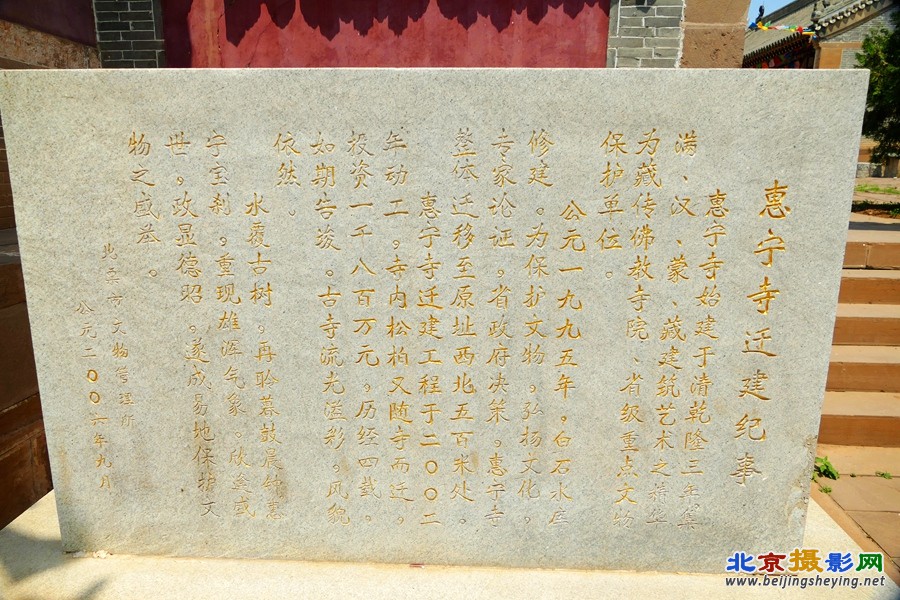 惠宁寺迁建纪事
惠宁寺始建于清乾隆三年集
满、汉、蒙、藏建筑艺术之精华
为藏传佛教寺院、省级重点文物
保护单位。
公元一九九五年，白石水库
修建。为保护文物，弘扬文化，
专家论证，省政府决策，惠宁寺
整体迁移至原址西北五百米处。
惠宁寺迁建工程于二〇〇二
年动工，寺内松柏又随寺而迁，
投资一千八百万元，历经四载，
如期告竣。古寺流光溢彩，风貌
依然。
水覆古树，再聆暮鼓晨钟惠
宁宝刹，重现雄浑气象。欣逢盛
世，政显德昭，遂成易地保护文
物之盛举。
北票市文物管理所
公元二〇〇六年九月
北京摄影网
www.beijingsheying.net